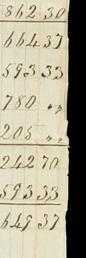 862 30
664 37
593 33
780 ,,
205 ,,
242 70
593 33
649 37